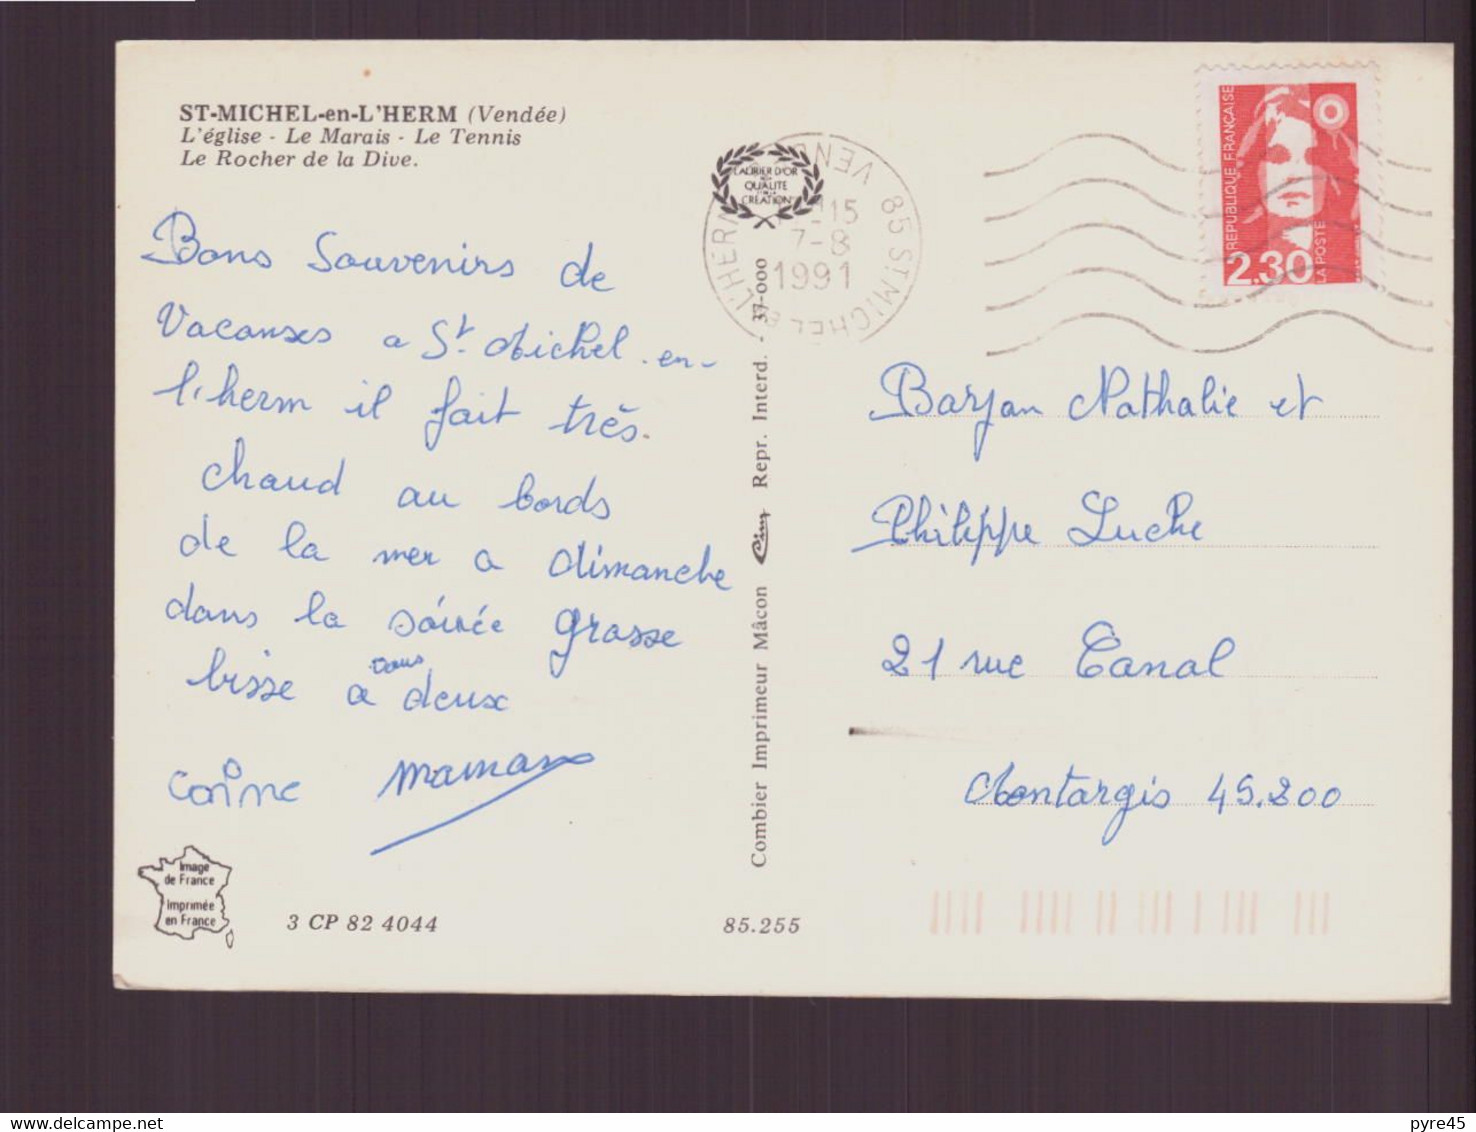 ST-MICHEL-en-L'HERM (Vendée)
L'église - Le Marais - Le Tennis
Le Rocher de la Dive.
Bons Souvenirs de
Vacanses a St Michel-en-
l'herm il fait très
chaud au bords
de la mer a dimanche
dans la soirée grosse
bisse a tous deux
Corine maman
Image
de France
Imprimée
en France
3 CP 82 4044
85.255
Combier Imprimeur Mâcon Cim Repr. Interd. - 37-000
LAURIER D'OR
QUALITÉ
CRÉATION
85 ST MICHEL E L'HERM VEND
15
7-8
1991
REPUBLIQUE FRANÇAISE
2,30
LA POSTE
Barjan Nathalie et
Philippe Luche
21 rue Canal
Montargis 45.200
pyre45